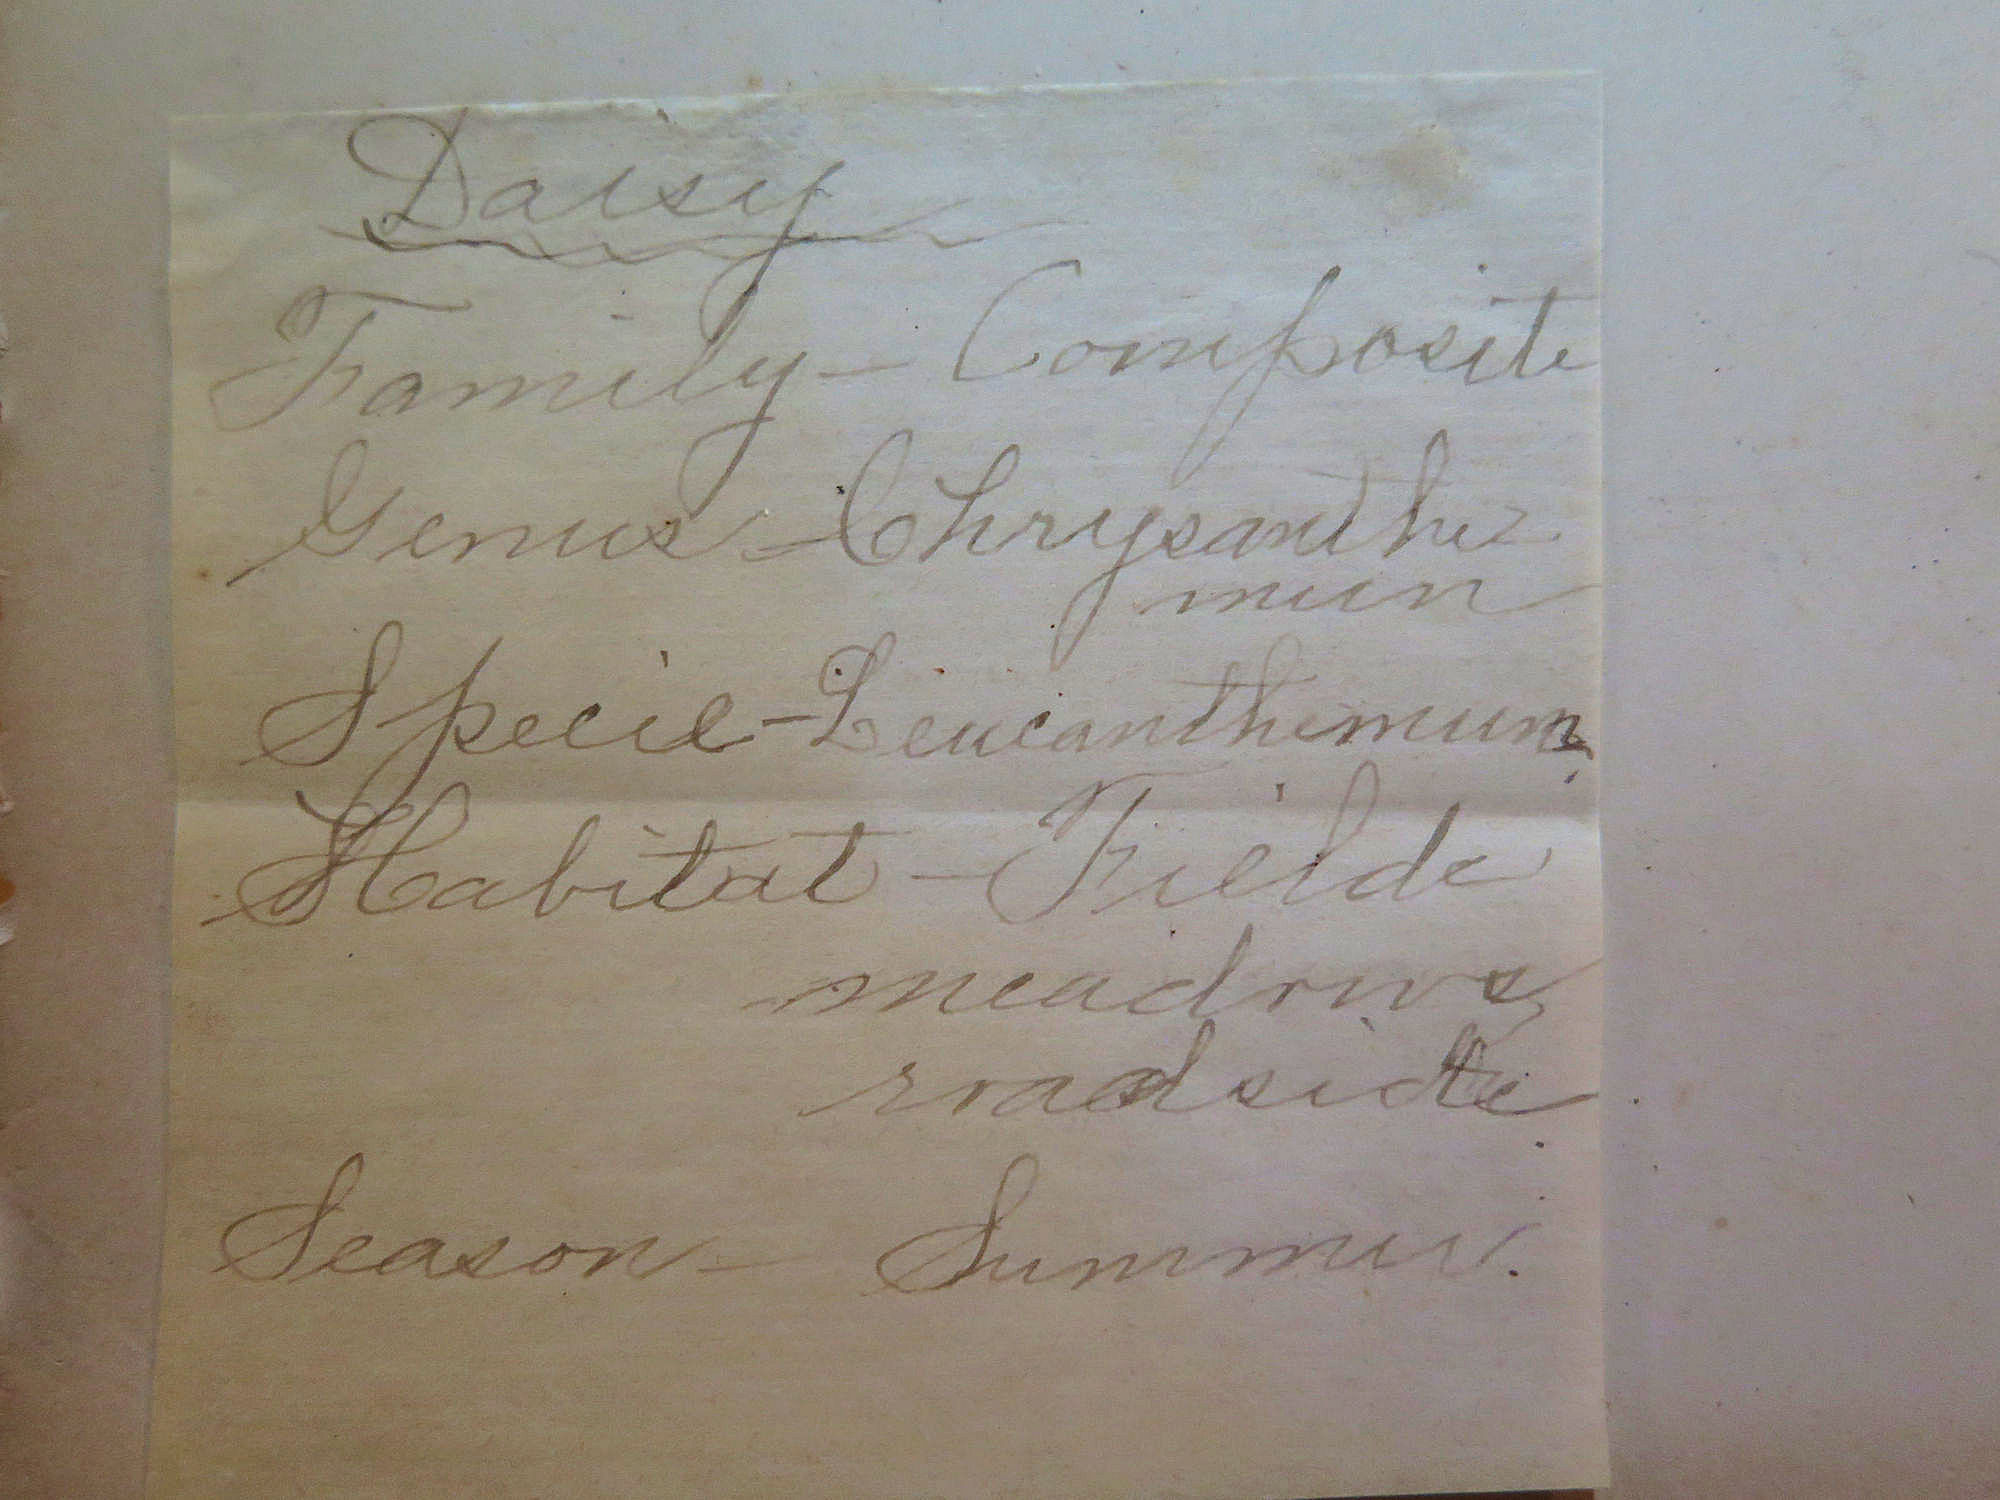 Daisy
Family - Composite
Genus - Chrysanthe-
mum
Specie - Leucanthemum
Habitat - Fields
meadows,
roadside
Season - Summer.